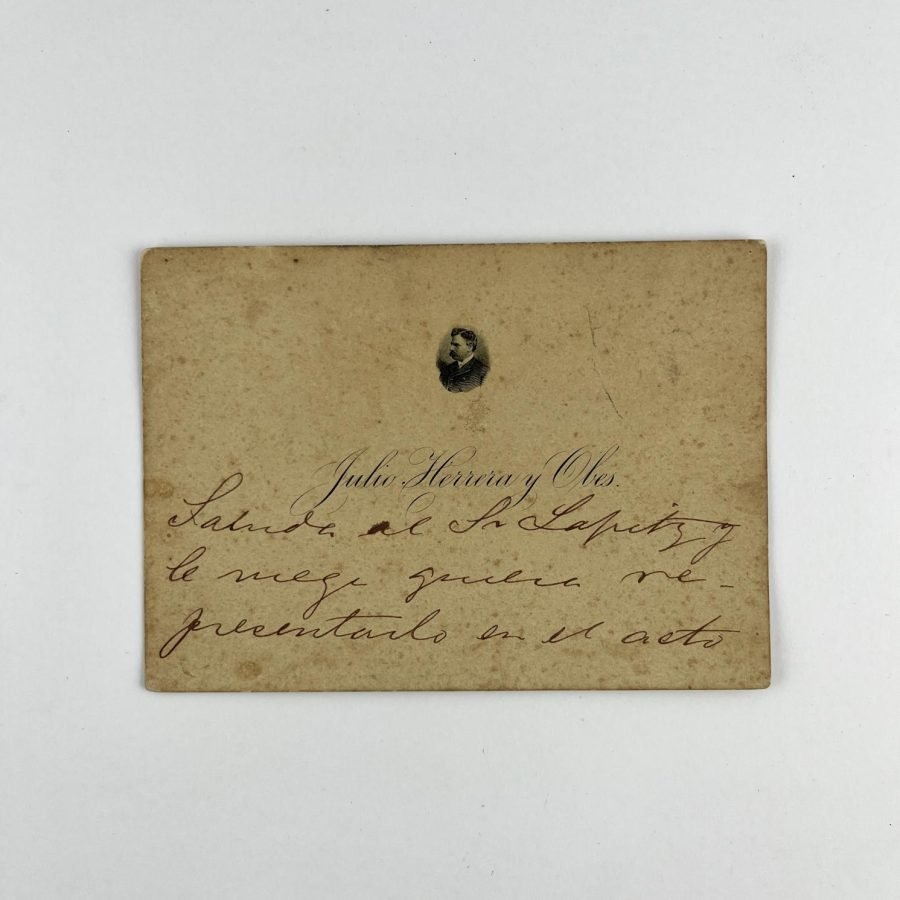 Julio Herrera y Obes.
Saluda al Sr Lapitz y
le ruega quiera re-
presentarlo en el acto